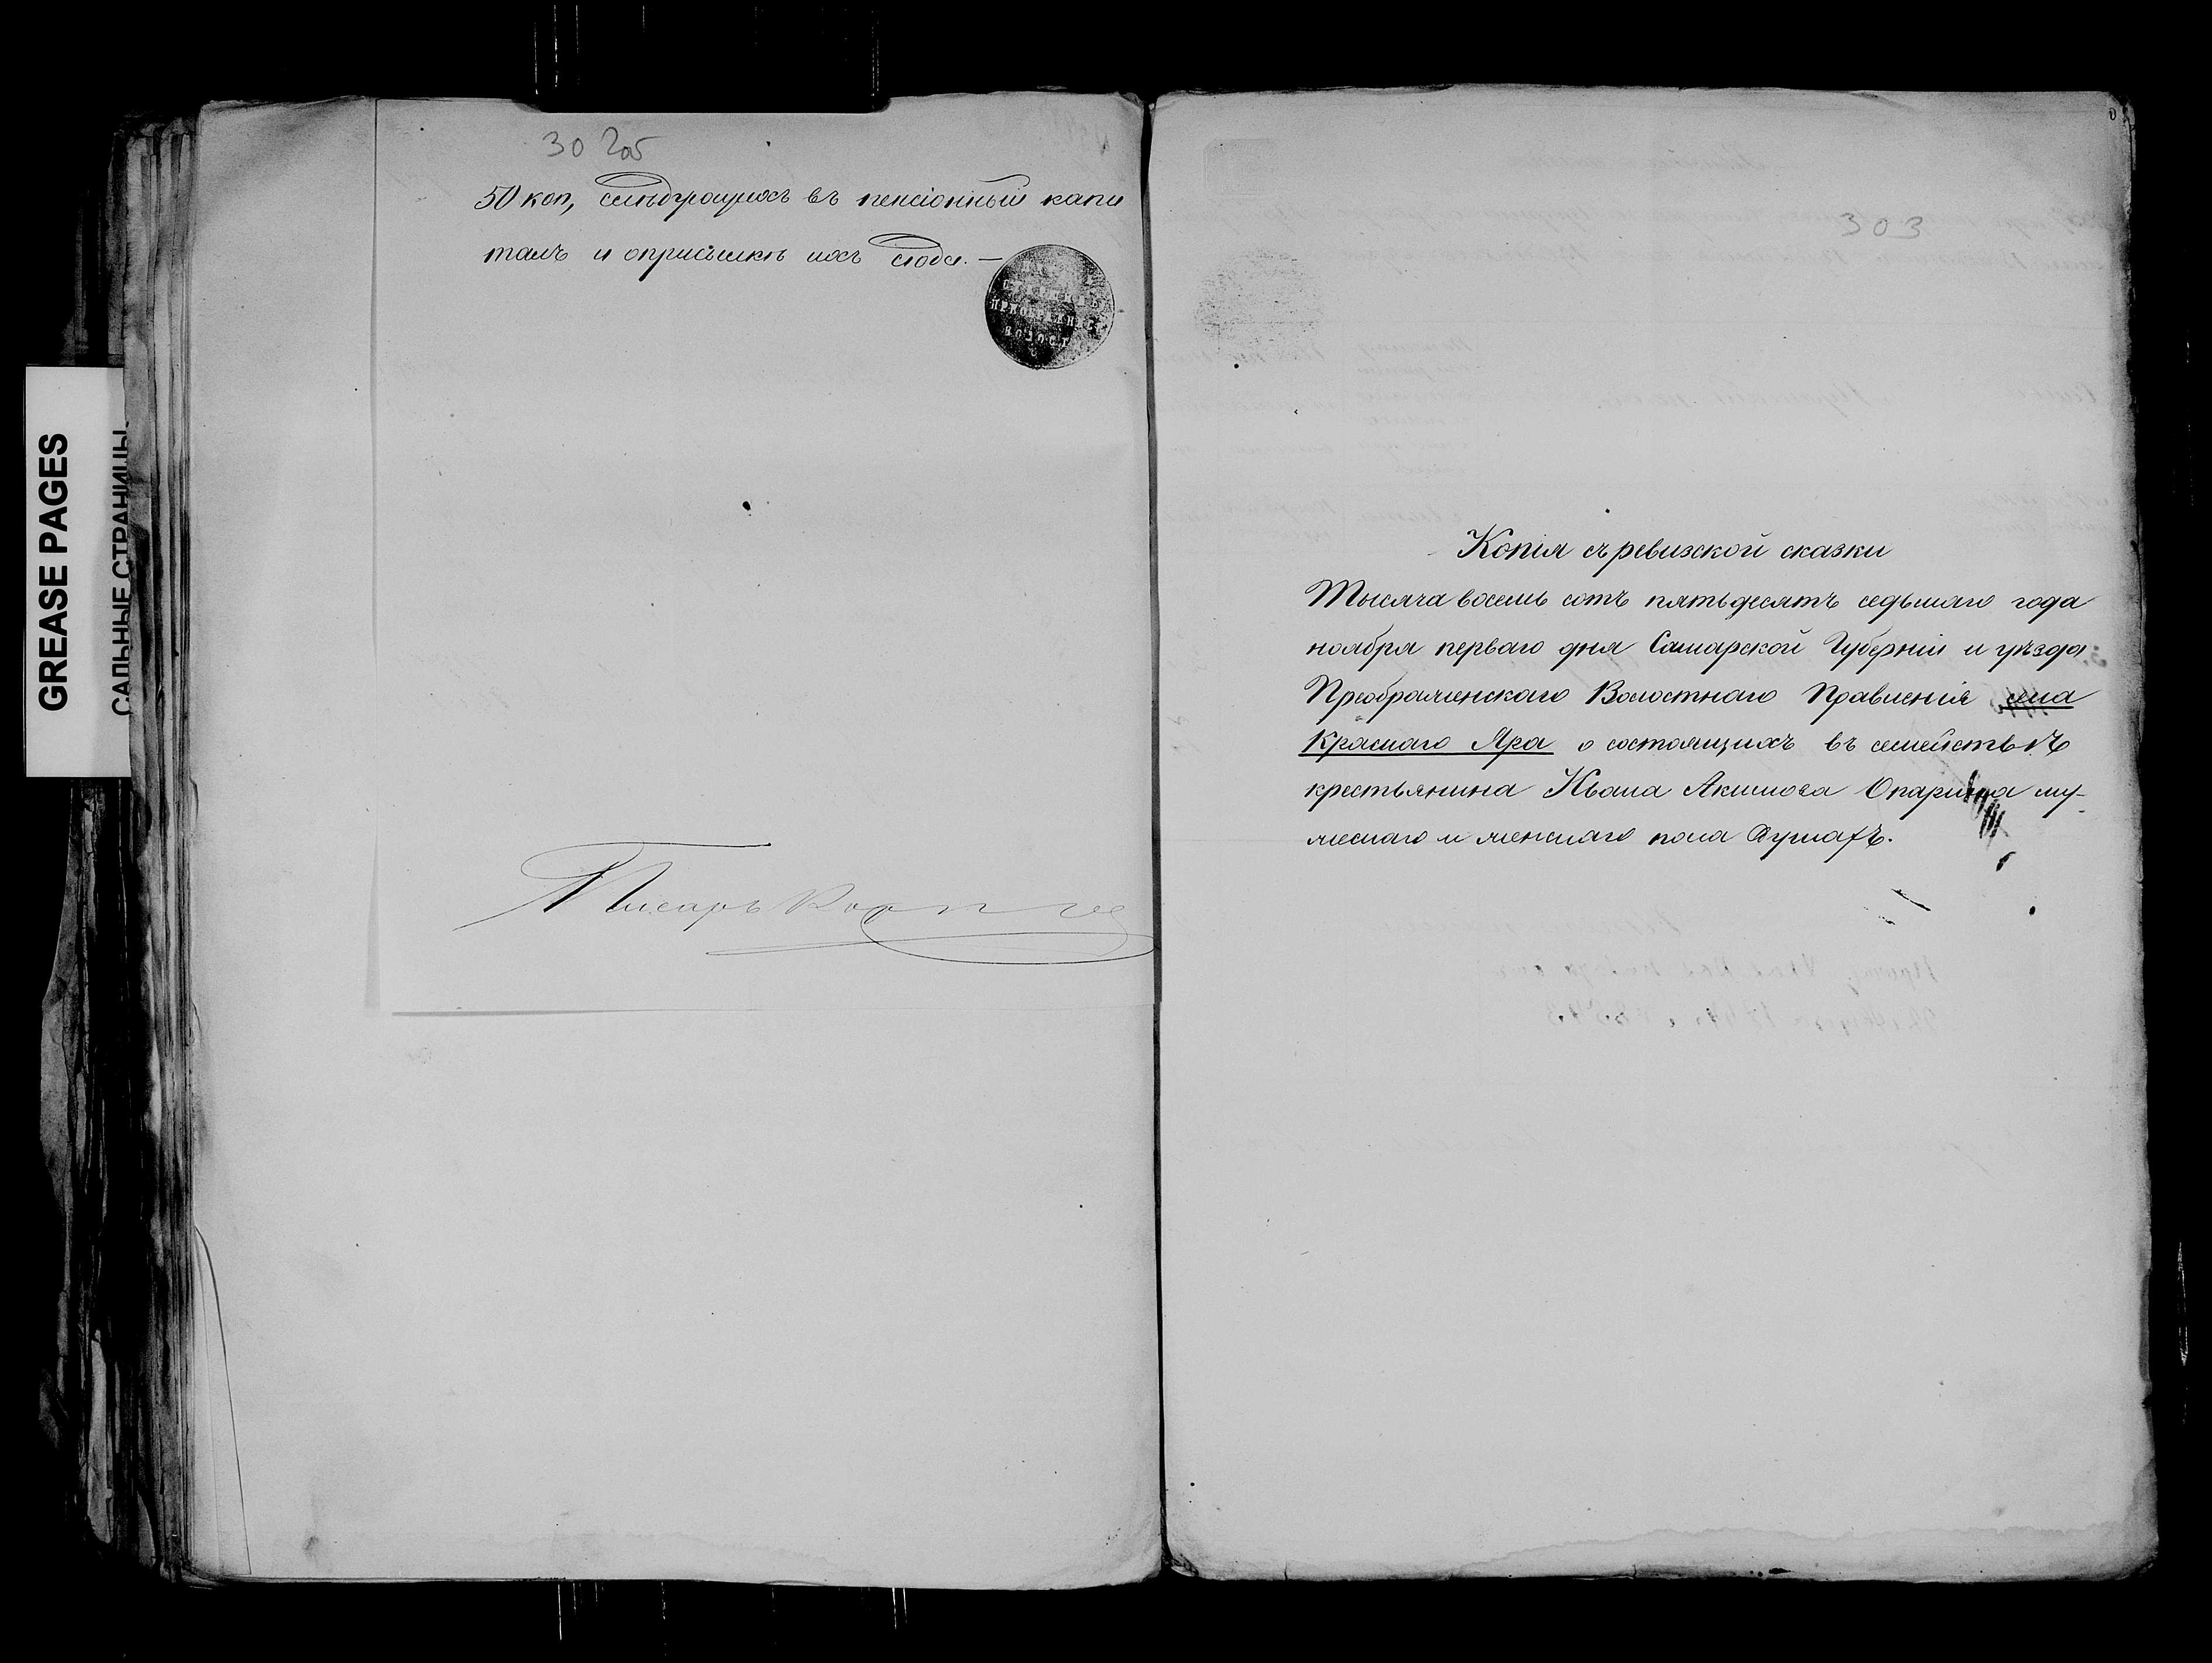 GREASE PAGES
САЛЬНЫЕ СТРАНИЦЫ
30 2об
50 коп, слѣдующихъ въ пенсіонный капи
талъ и о присылкѣ ихъ сюда. —
Писарь
303
Копія съ ревизской сказки
Тысяча восемь сотъ пятьдесятъ седьмаго года
ноября перваго дня Самарской Губерніи и уѣзда
Преображенскаго Волостнаго Правленія села
Краснаго Яра о состоящихъ въ семействѣ
крестьянина Ивана Акимова Опарина му-
жескаго и женскаго пола душахъ.